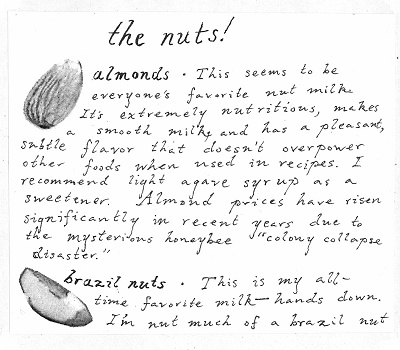 the nuts!
almonds · This seems to be
everyone's favorite nut milk.
It's extremely nutritious, makes
a smooth milk, and has a pleasant,
subtle flavor that doesn't overpower
other foods when used in recipes. I
recommend light agave syrup as a
sweetener. Almond prices have risen
significantly in recent years due to
the mysterious honeybee "colony collapse
disaster."
brazil nuts · This is my all-
time favorite milk—hands down.
I'm nut much of a brazil nut